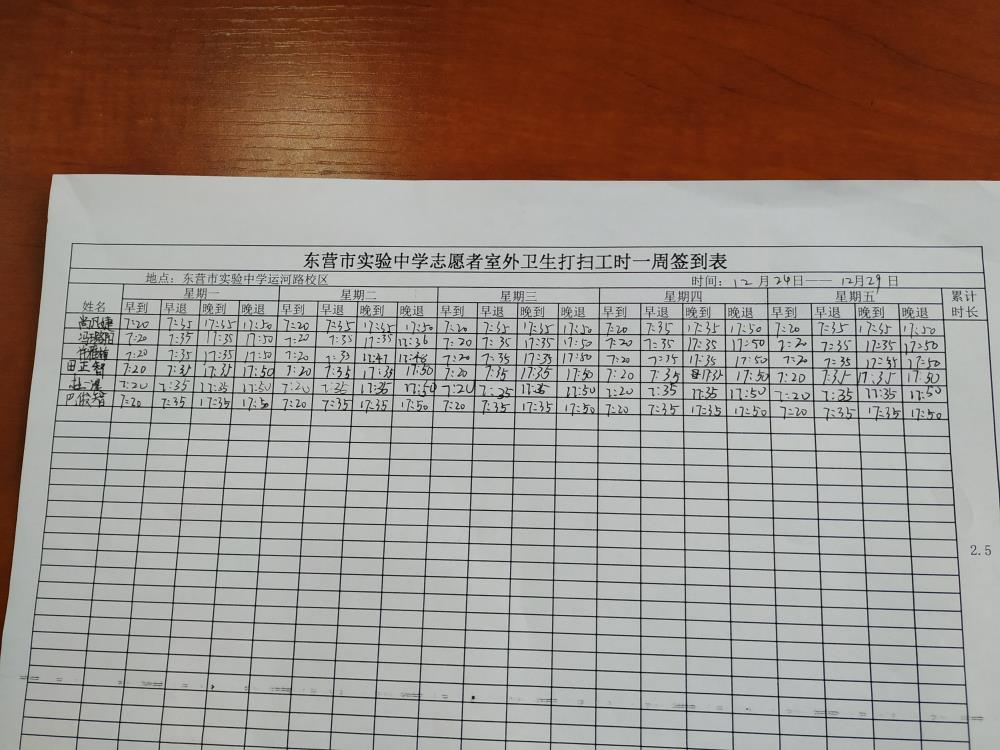 东营市实验中学志愿者室外卫生打扫工时一周签到表
地点：东营市实验中学运河路校区 时间：12月24日——12月29日
姓名 星期一 星期二 星期三 星期四 星期五 累计时长
早到 早退 晚到 晚退 早到 早退 晚到 晚退 早到 早退 晚到 晚退 早到 早退 晚到 晚退 早到 早退 晚到 晚退
7:20 7:35 17:35 17:50 7:20 7:35 17:35 17:50 7:20 7:35 17:35 17:50 7:20 7:35 17:35 17:50 7:20 7:35 17:35 17:50
7:20 7:35 17:35 17:50 7:20 7:35 17:35 7:20 7:35 17:35 17:50 7:20 7:35 17:35 17:50 7:20 7:35 17:35 17:50
7:20 7:35 17:35 17:50 7:20 7:35 17:47 17:48 7:20 7:35 17:35 17:50 7:20 7:35 17:35 17:50 7:20 7:35 17:35 17:50
田正智 7:20 7:35 17:35 17:50 7:20 7:35 17:35 17:50 7:20 7:35 17:35 17:50 7:20 7:35 17:35 17:50 7:20 7:35 17:35 17:50
7:20 7:35 17:35 17:50 7:20 7:35 17:35 17:50 7:20 7:35 17:35 17:50 7:20 7:35 17:35 17:50 7:20 7:35 17:35 17:50
巴俊智 7:20 7:35 17:35 17:50 7:20 7:35 17:35 17:50 7:20 7:35 17:35 17:50 7:20 7:35 17:35 17:50 7:20 7:35 17:35 17:50
2.5